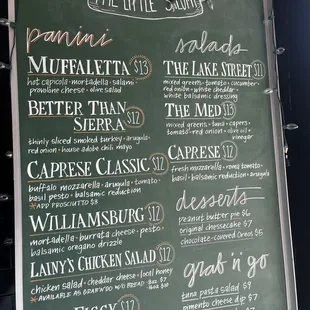 THE LITTLE
panini
MUFFALETTA $13
hot capicola · mortadella · salami ·
provolone cheese · olive salad
BETTER THAN
SIERRA $12
thinly sliced smoked turkey · arugula ·
red onion · house adobo chili mayo
CAPRESE CLASSIC $12
buffalo mozzarella · arugula · tomato ·
basil pesto · balsamic reduction
*ADD PROSCIUTTO $3
WILLIAMSBURG $12
mortadella · burrata cheese · pesto ·
balsamic oregano drizzle
LAINY'S CHICKEN SALAD $12
chicken salad · cheddar cheese · local honey
*AVAILABLE AS GRAB N GO W/O BREAD
salads
THE LAKE STREET $11
mixed greens · tomato · cucumber ·
red onion · white cheddar ·
white balsamic dressing
THE MED $13
mixed greens · tuna · capers ·
tomato · red onion · olive oil ·
vinegar
CAPRESE $12
fresh mozzarella · roma tomato ·
basil · balsamic reduction · arugula
desserts
peanut butter pie $6
original cheesecake $7
chocolate · covered oreos $5
grab 'n' go
tuna pasta salad $9
pimento cheese dip $7